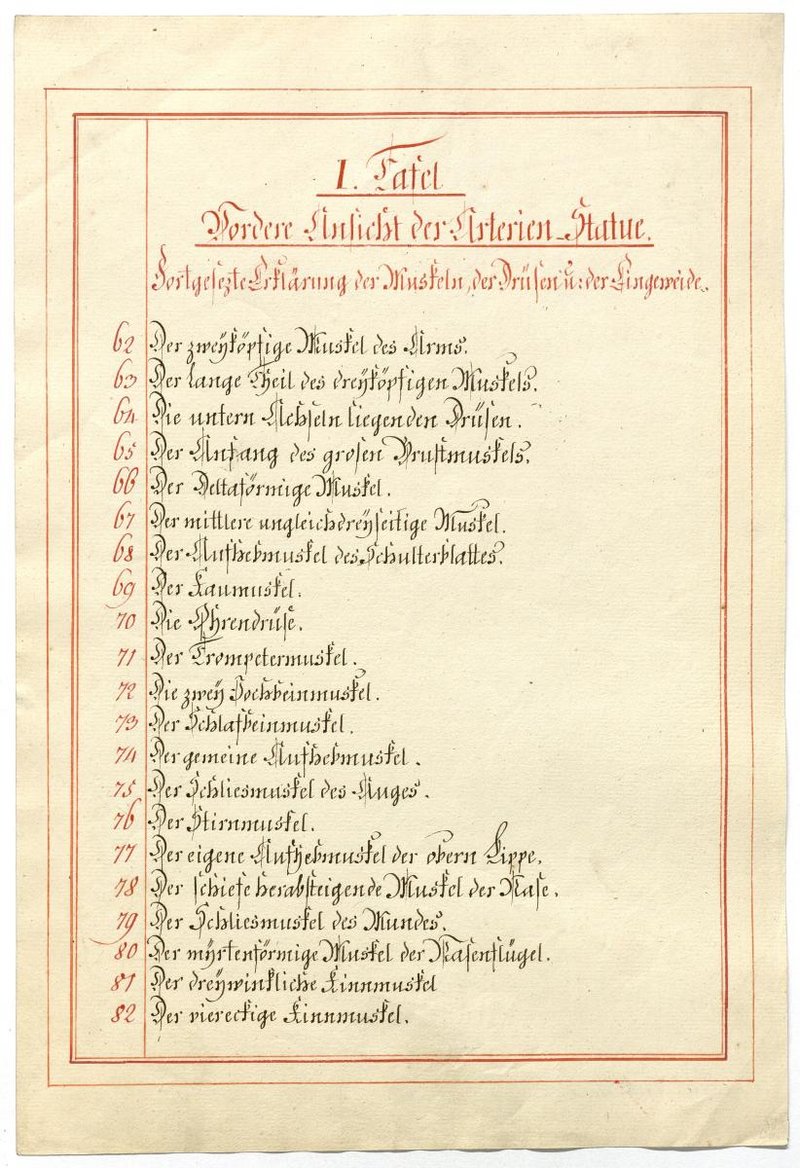 I. Tafel
Vordere Ansicht der Arterien-Statue.
Fortgesezte Erklärung der Muskeln, der Drüsen u: der Eingeweide.
62 Der zweyköpfige Muskel des Arms.
63 Der lange Theil des dreyköpfigen Muskels.
64 Die untern Achseln liegenden Drüsen.
65 Der Anfang des grosen Brustmuskels.
66 Der Deltaförmige Muskel.
67 Der mittlere ungleichdreyseitige Muskel.
68 Der Aufhebmuskel des Schulterblattes.
69 Der Kaumuskel.
70 Die Ohrendrüse.
71 Der Trompetermuskel.
72 Die zwey Jochbeinmuskel.
73 Der Schlafbeinmuskel.
74 Der gemeine Aufhebmuskel.
75 Der Schliesmuskel des Auges.
76 Der Stirnmuskel.
77 Der eigene Aufhebmuskel der obern Lippe.
78 Der schiefe herabsteigende Muskel der Nase.
79 Der Schliesmuskel des Mundes.
80 Der myrtenförmige Muskel der Nasenflügel.
81 Der dreywinkliche Kinnmuskel
82 Der viereckige Kinnmuskel.